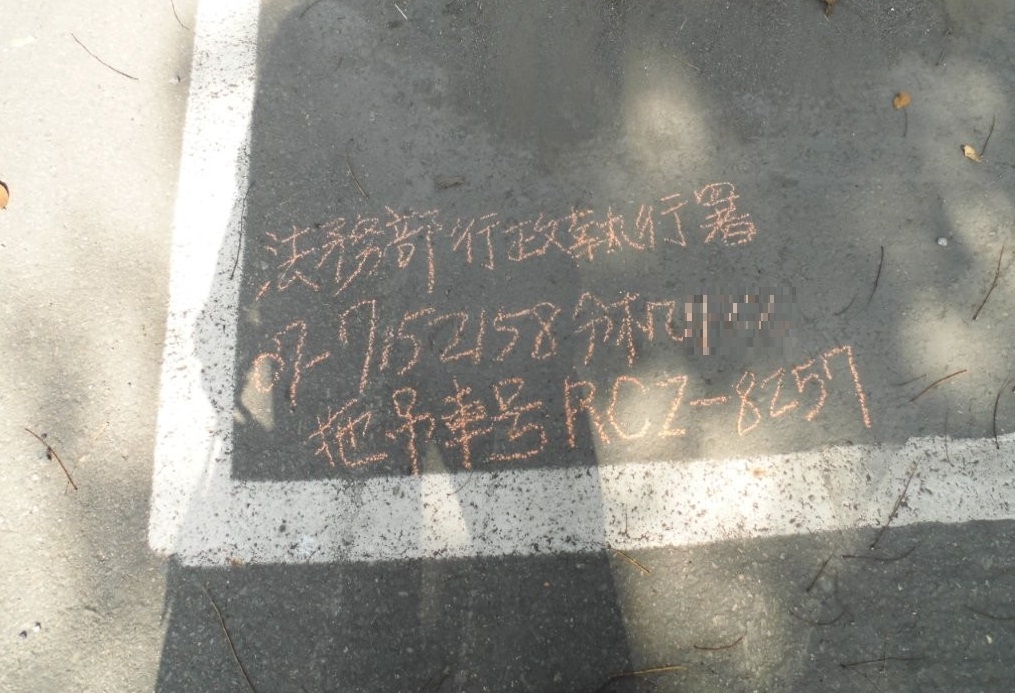 法務部行政執行署
07-7152158分机
拖吊車号RCZ-8257